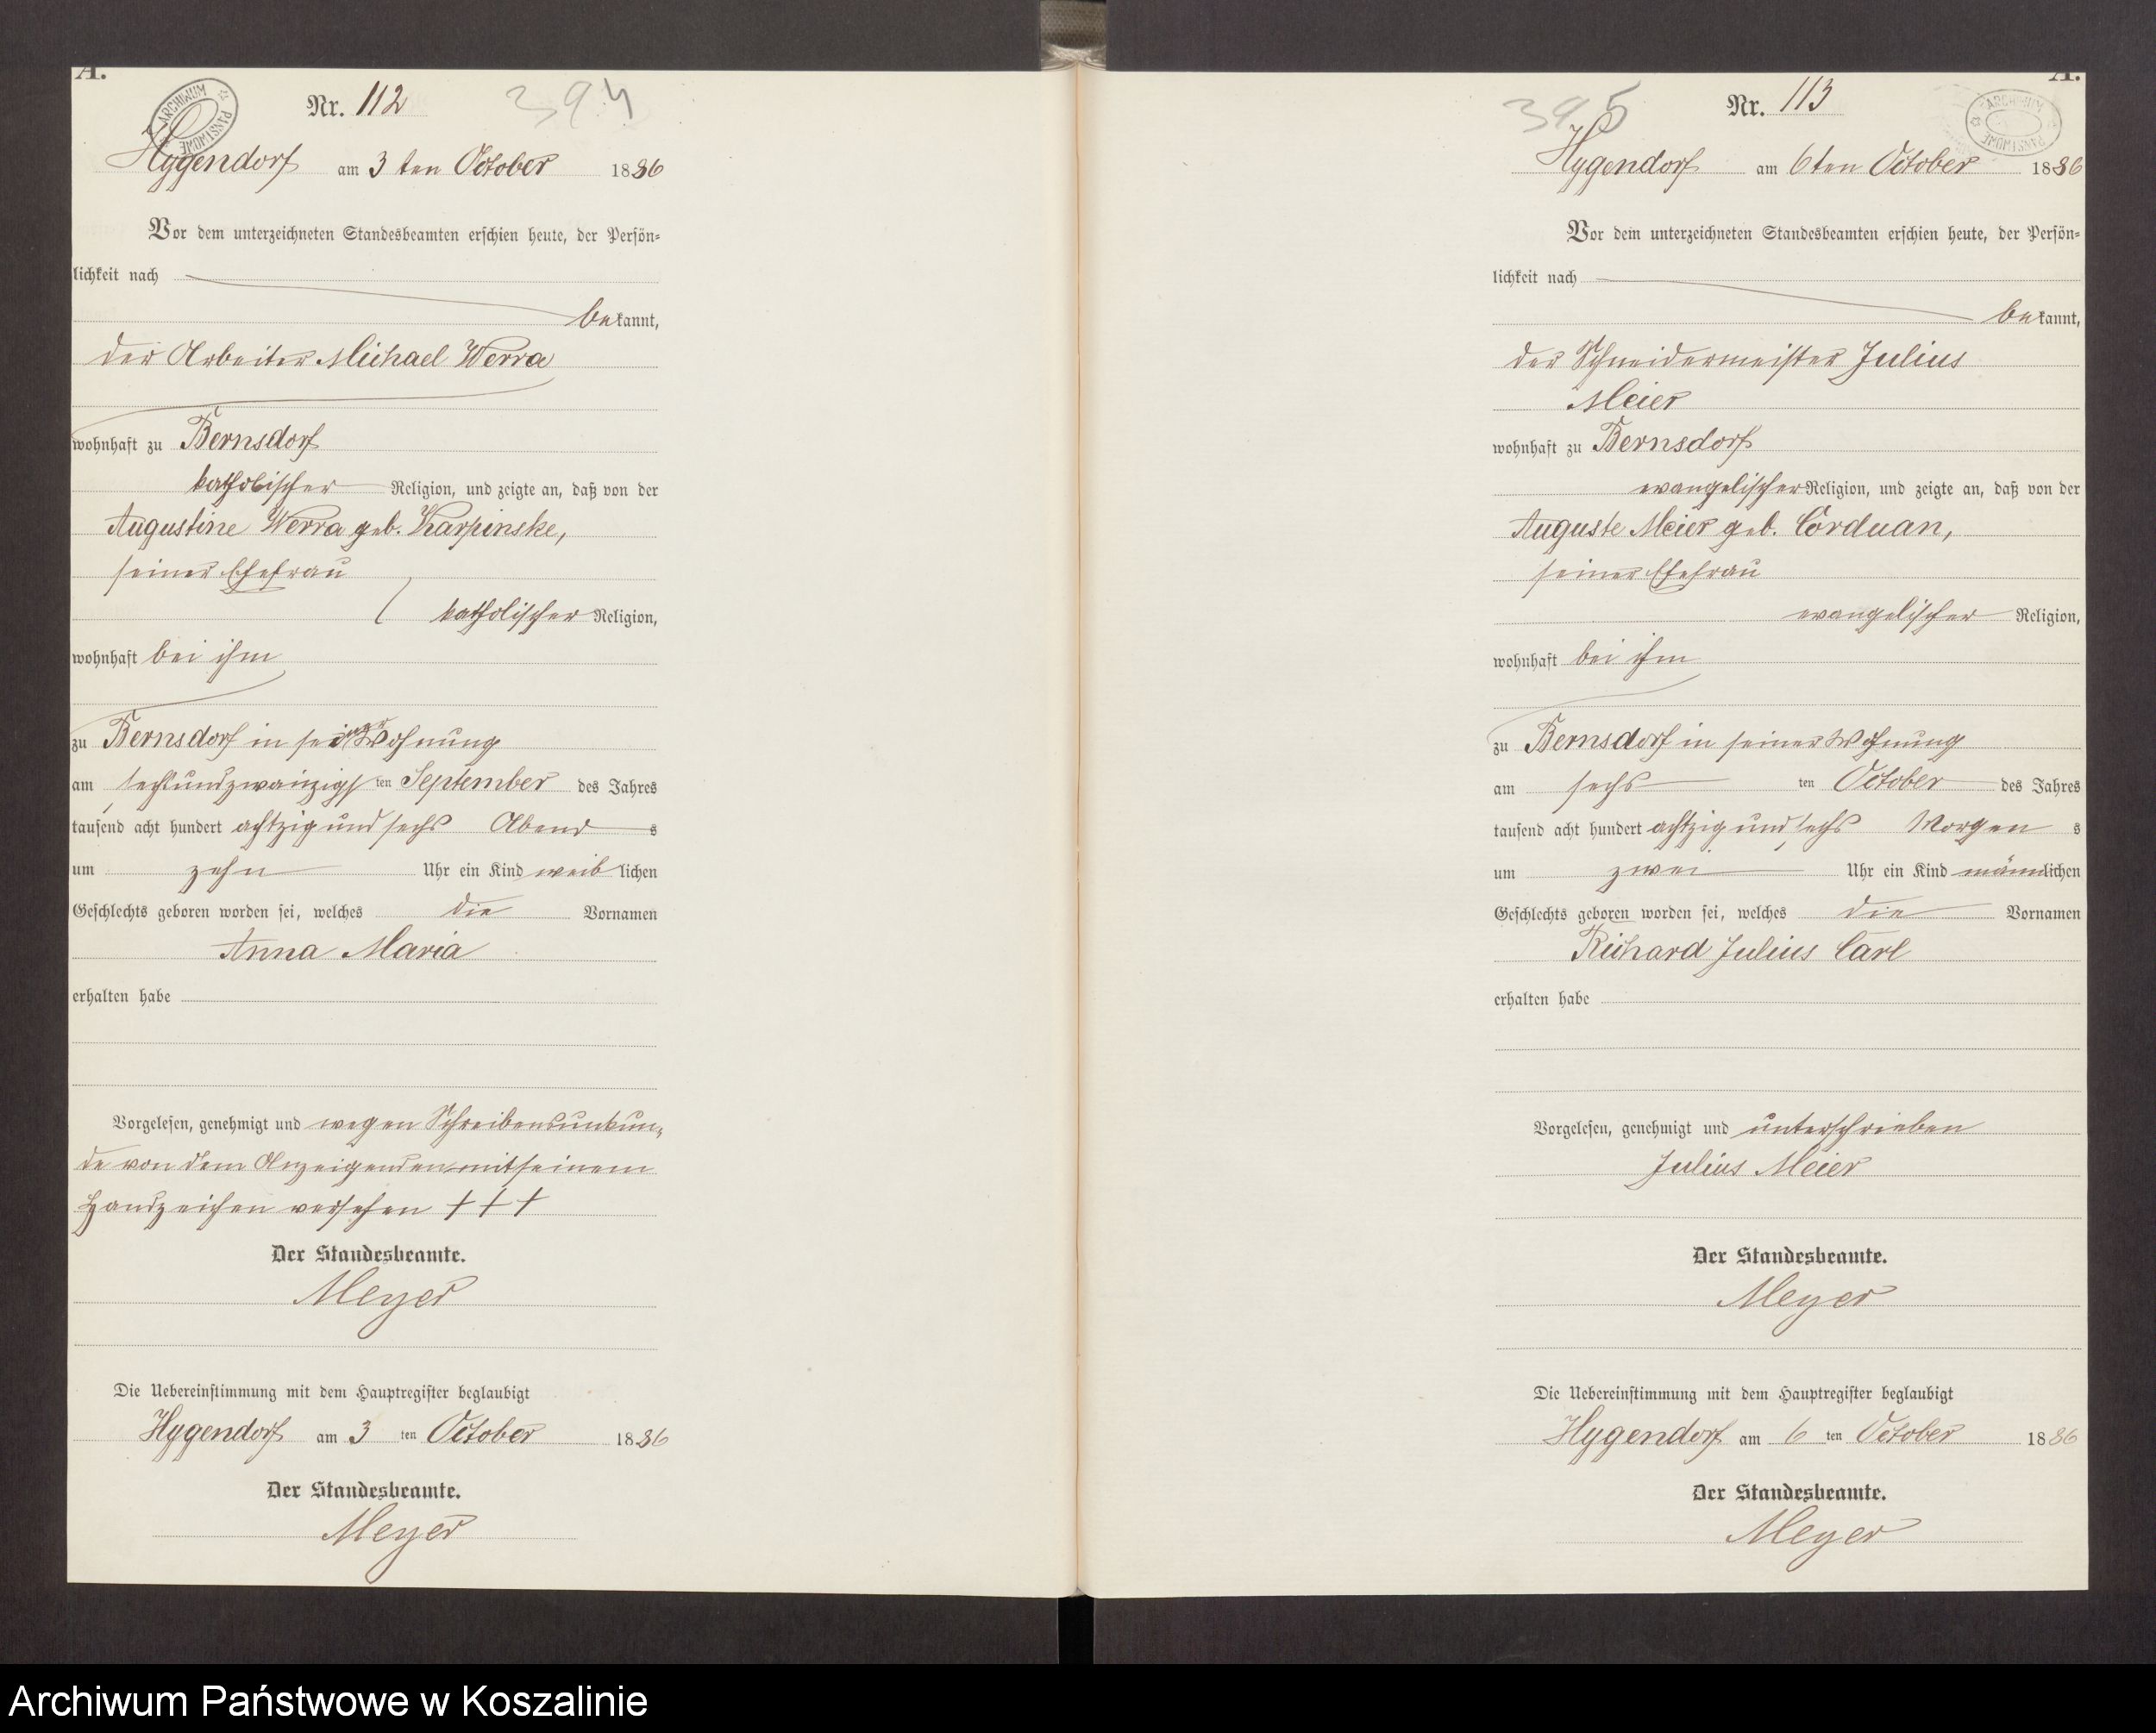 A.
ARCHIWUM PAŃSTWOWE
Nr. 112
394
Hygendorf am 3 ten October 1886
Vor dem unterzeichneten Standesbeamten erschien heute, der Persön=
lichkeit nach
bekannt,
der Arbeiter Michael Werra
wohnhaft zu Bernsdorf
katholischer Religion, und zeigte an, daß von der
Augustine Werra geb. Karpinske,
seiner Ehefrau
katholischer Religion,
wohnhaft bei ihm
zu Bernsdorf in seiner Wohnung
am sechsundzwanzigsten September des Jahres
tausend acht hundert achtzig und sechs Abends
um zehn Uhr ein Kind weiblichen
Geschlechts geboren worden sei, welches die Vornamen
Anna Maria
erhalten habe
Vorgelesen, genehmigt und wegen Schreibensunkun=
de von dem Anzeigenden mit seinem
Handzeichen versehen + + +
Der Standesbeamte.
Meyer
Die Uebereinstimmung mit dem Hauptregister beglaubigt
Hygendorf am 3 ten October 1886
Der Standesbeamte.
Meyer
A.
395
Nr. 113
ARCHIWUM PAŃSTWOWE
Hygendorf am 6 ten October 1886
Vor dem unterzeichneten Standesbeamten erschien heute, der Persön=
lichkeit nach
bekannt,
der Schneidermeister Julius
Meier
wohnhaft zu Bernsdorf
evangelischer Religion, und zeigte an, daß von der
Auguste Meier geb. Corduan,
seiner Ehefrau
evangelischer Religion,
wohnhaft bei ihm
zu Bernsdorf in seiner Wohnung
am sechs ten October des Jahres
tausend acht hundert achtzig und sechs Morgens
um zwei Uhr ein Kind männlichen
Geschlechts geboren worden sei, welches die Vornamen
Richard Julius Carl
erhalten habe
Vorgelesen, genehmigt und unterschrieben
Julius Meier
Der Standesbeamte.
Meyer
Die Uebereinstimmung mit dem Hauptregister beglaubigt
Hygendorf am 6 ten October 1886
Der Standesbeamte.
Meyer
Archiwum Państwowe w Koszalinie